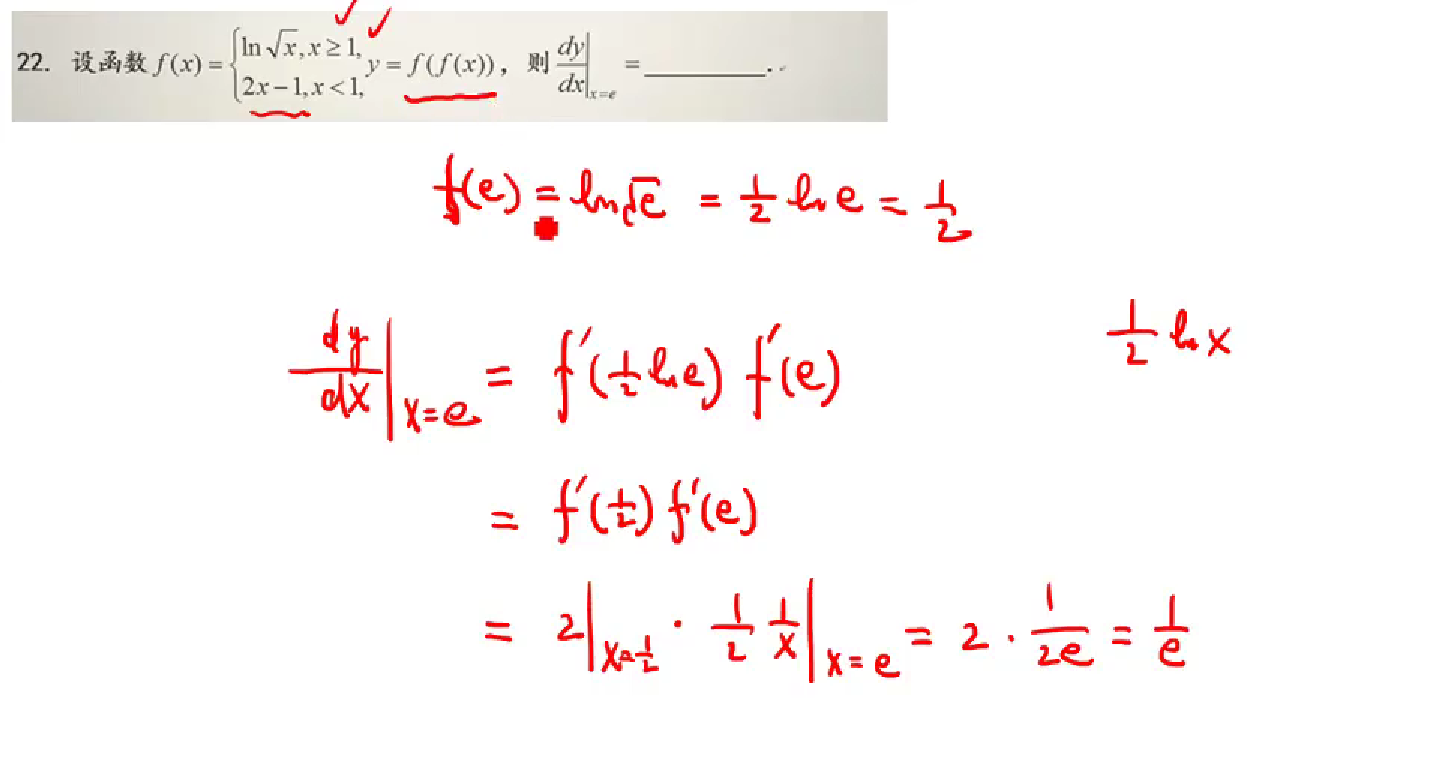 22. 设函数 f(x) = { ln √x, x ≥ 1, 2x − 1, x < 1, y = f(f(x)), 则 dy/dx |x=e = ________.
f(e) = ln √e = 1/2 ln e = 1/2
1/2 ln x
dy/dx |x=e = f'(1/2 ln e) f'(e)
= f'(1/2) f'(e)
= 2 |x=1/2 · 1/2 1/x |x=e = 2 · 1/2e = 1/e